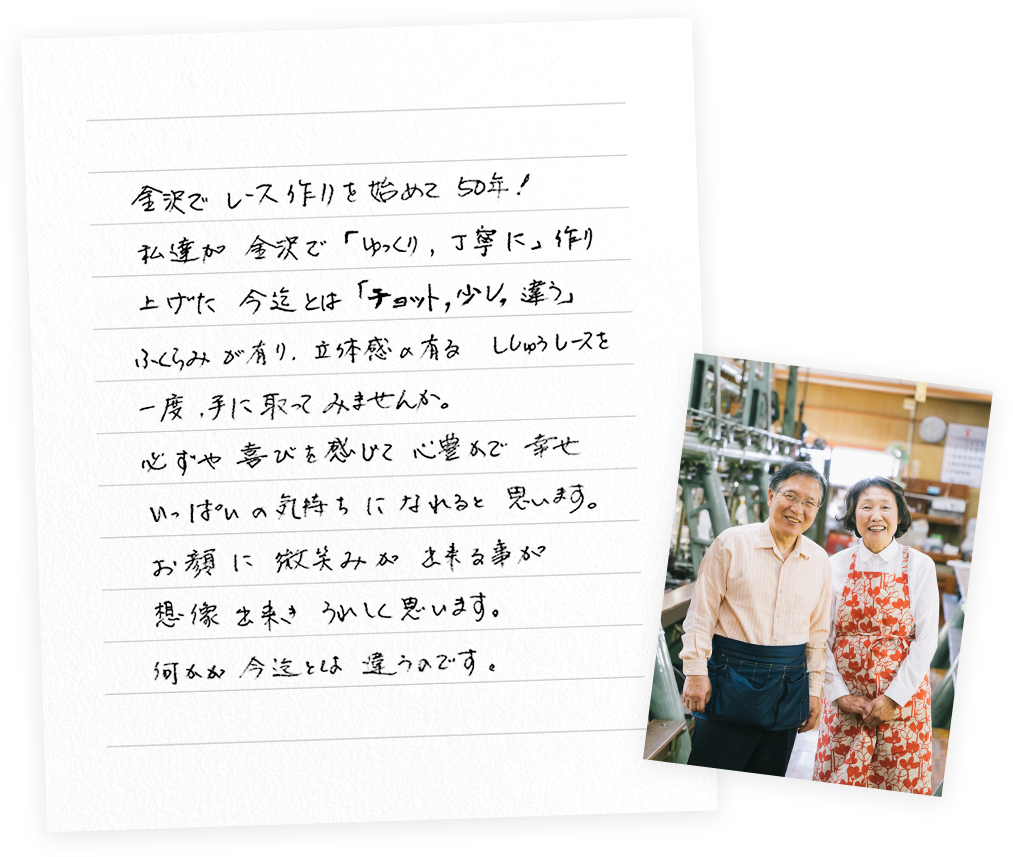 金沢で レース作りを始めて 50年！
私達が 金沢で「ゆっくり，丁寧に」作り
上げた 今迄とは「チョット，少し，違う」
ふくらみが有り，立体感の有る ししゅうレースを
一度，手に取ってみませんか。
必ずや 喜びを感じて 心豊かで 幸せ
いっぱいの気持ちになれると 思います。
お顔に 微笑みが 出来る事が
想像出来き うれしく思います。
何かが 今迄とは 違うのです。